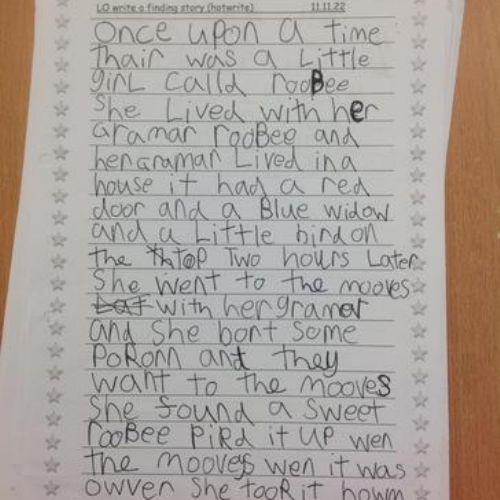 LO write a finding story (hotwrite) 11.11.22
Once upon a time
thair was a Little
girL Calld rooBee
She Lived with her
Gramar rooBee and
her gramar Lived in a
house it had a red
door and a Blue widow
and a Little bird on
the top Two hours Later
She went to the mooves
with her gramer
and She bont Some
PoRonn and they
want to the mooves
She found a Sweet
rooBee PiRd it UP wen
the mooves wen it was
owver She tooR it howm